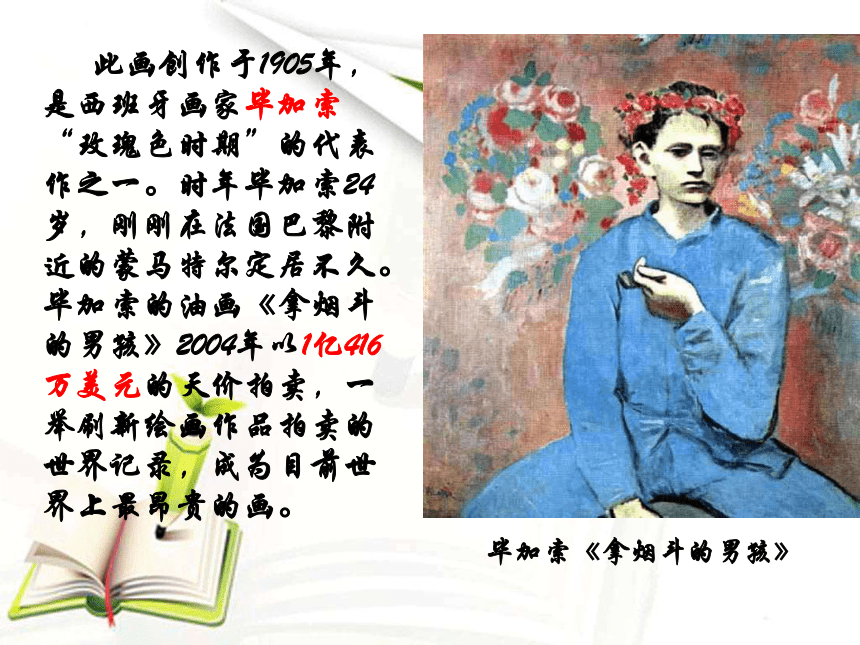 此画创作于1905年，
是西班牙画家毕加索
“玫瑰色时期”的代表
作之一。时年毕加索24
岁，刚刚在法国巴黎附
近的蒙马特尔定居不久。
毕加索的油画《拿烟斗
的男孩》2004年以1亿416
万美元的天价拍卖，一
举刷新绘画作品拍卖的
世界记录，成为目前世
界上最昂贵的画。
毕加索《拿烟斗的男孩》